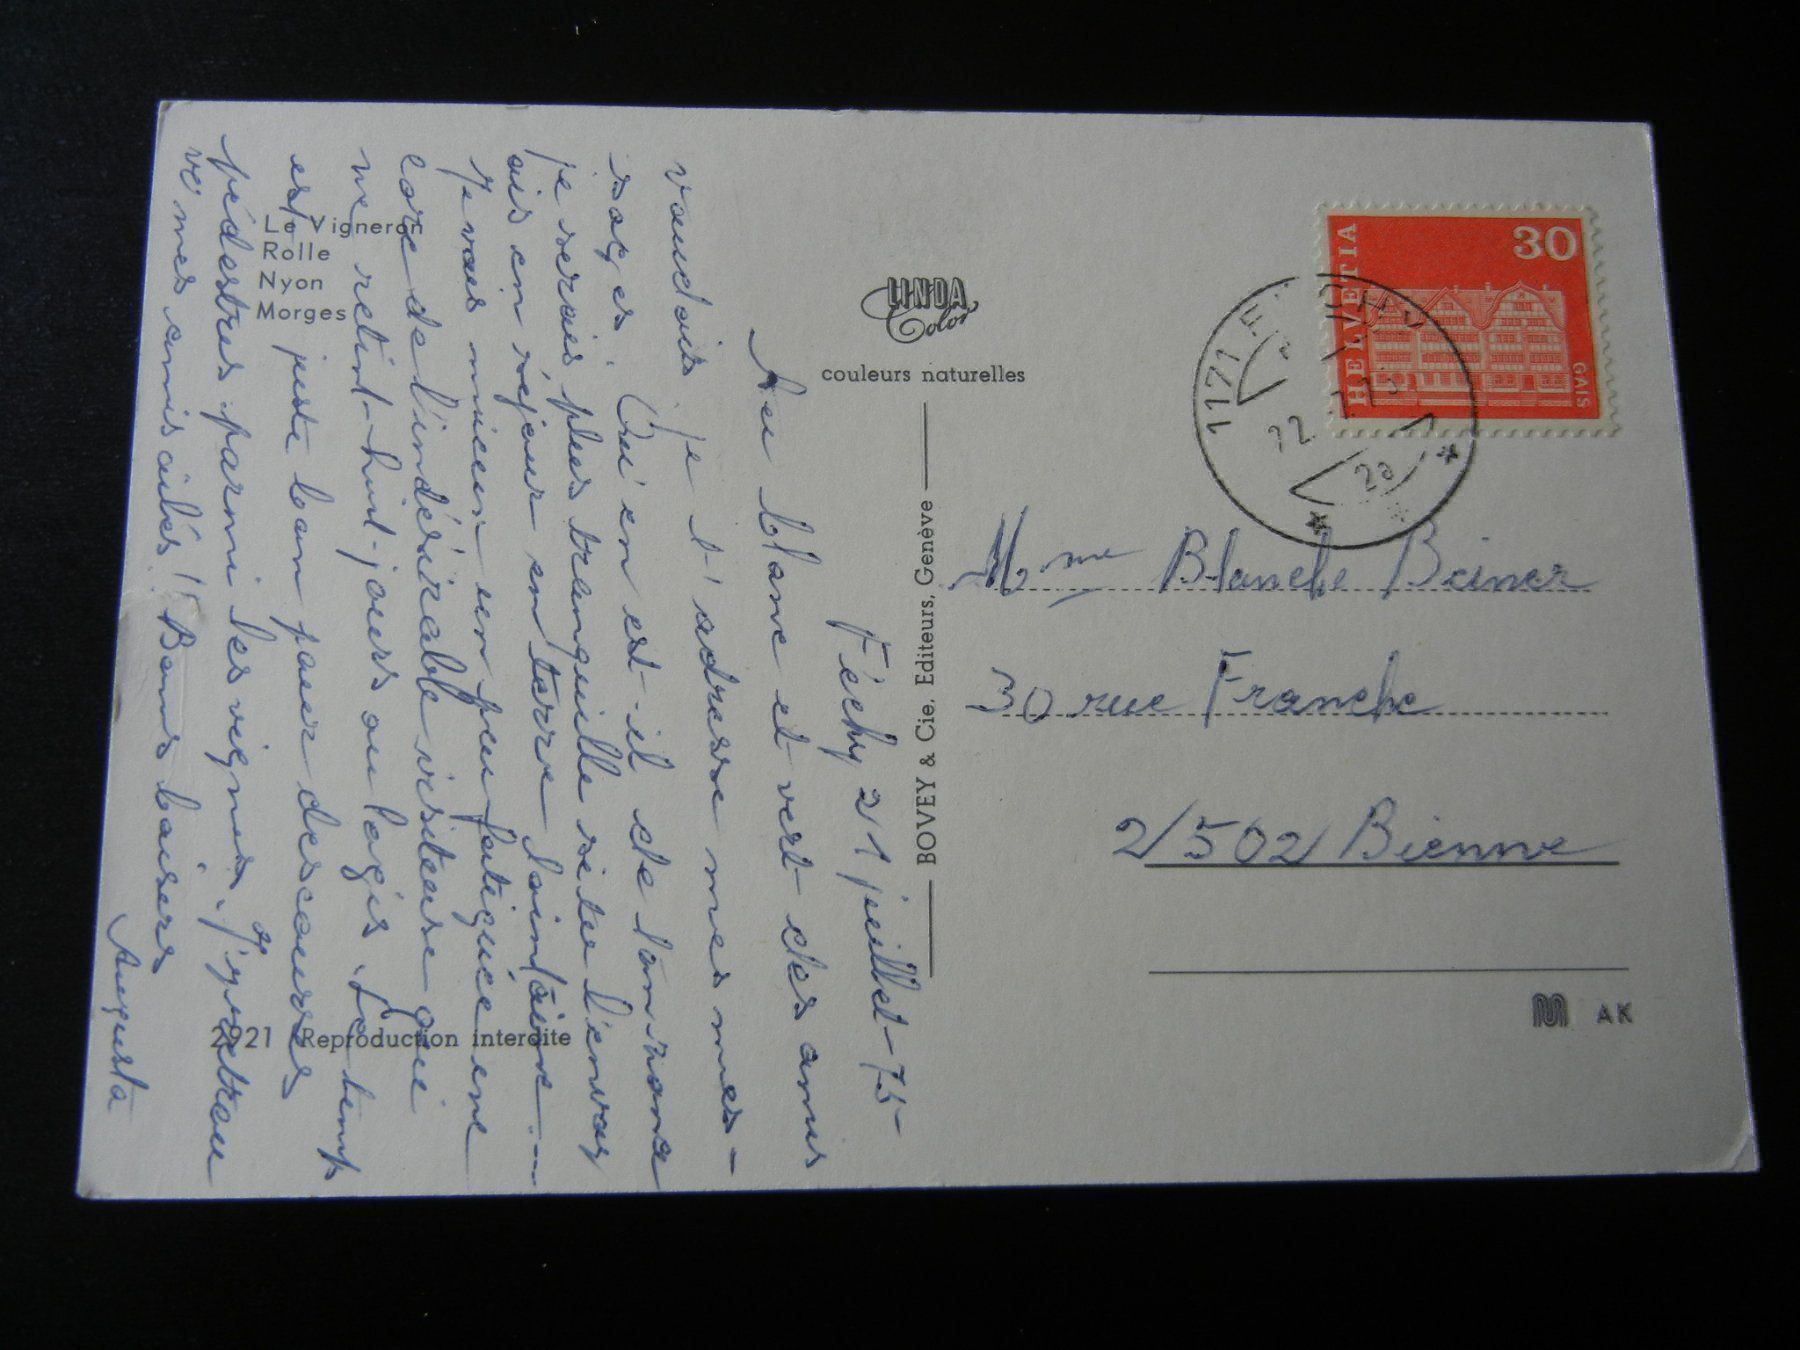 Le Vigneron
Rolle
Nyon
Morges
Féchy 21 juillet-75-
Au blanc et vert des amis
vaudois je t'adresse mes mes-
sages. Qu'en est-il de ton zona
je serais plus tranquille si tu l'envoy
ais en séjour en terre lointaine....
Je vais mieux un peu fatiguée en
core de l'indésirable visiteuse qui
me retint huit jours au logis. Le temps
est juste bon pour des courses
pédestres parmi les vignes. J'y retrou
ve mes amis ailés! Bons baisers
Augusta
2921 Reproduction interdite
LINDA
Color
couleurs naturelles
BOVEY & Cie. Editeurs, Genève
HELVETIA
30
GAIS
1171 FÉCHY
22
20
Mme Blanche Beiner
30 rue Franche
2502 Bienne
M AK